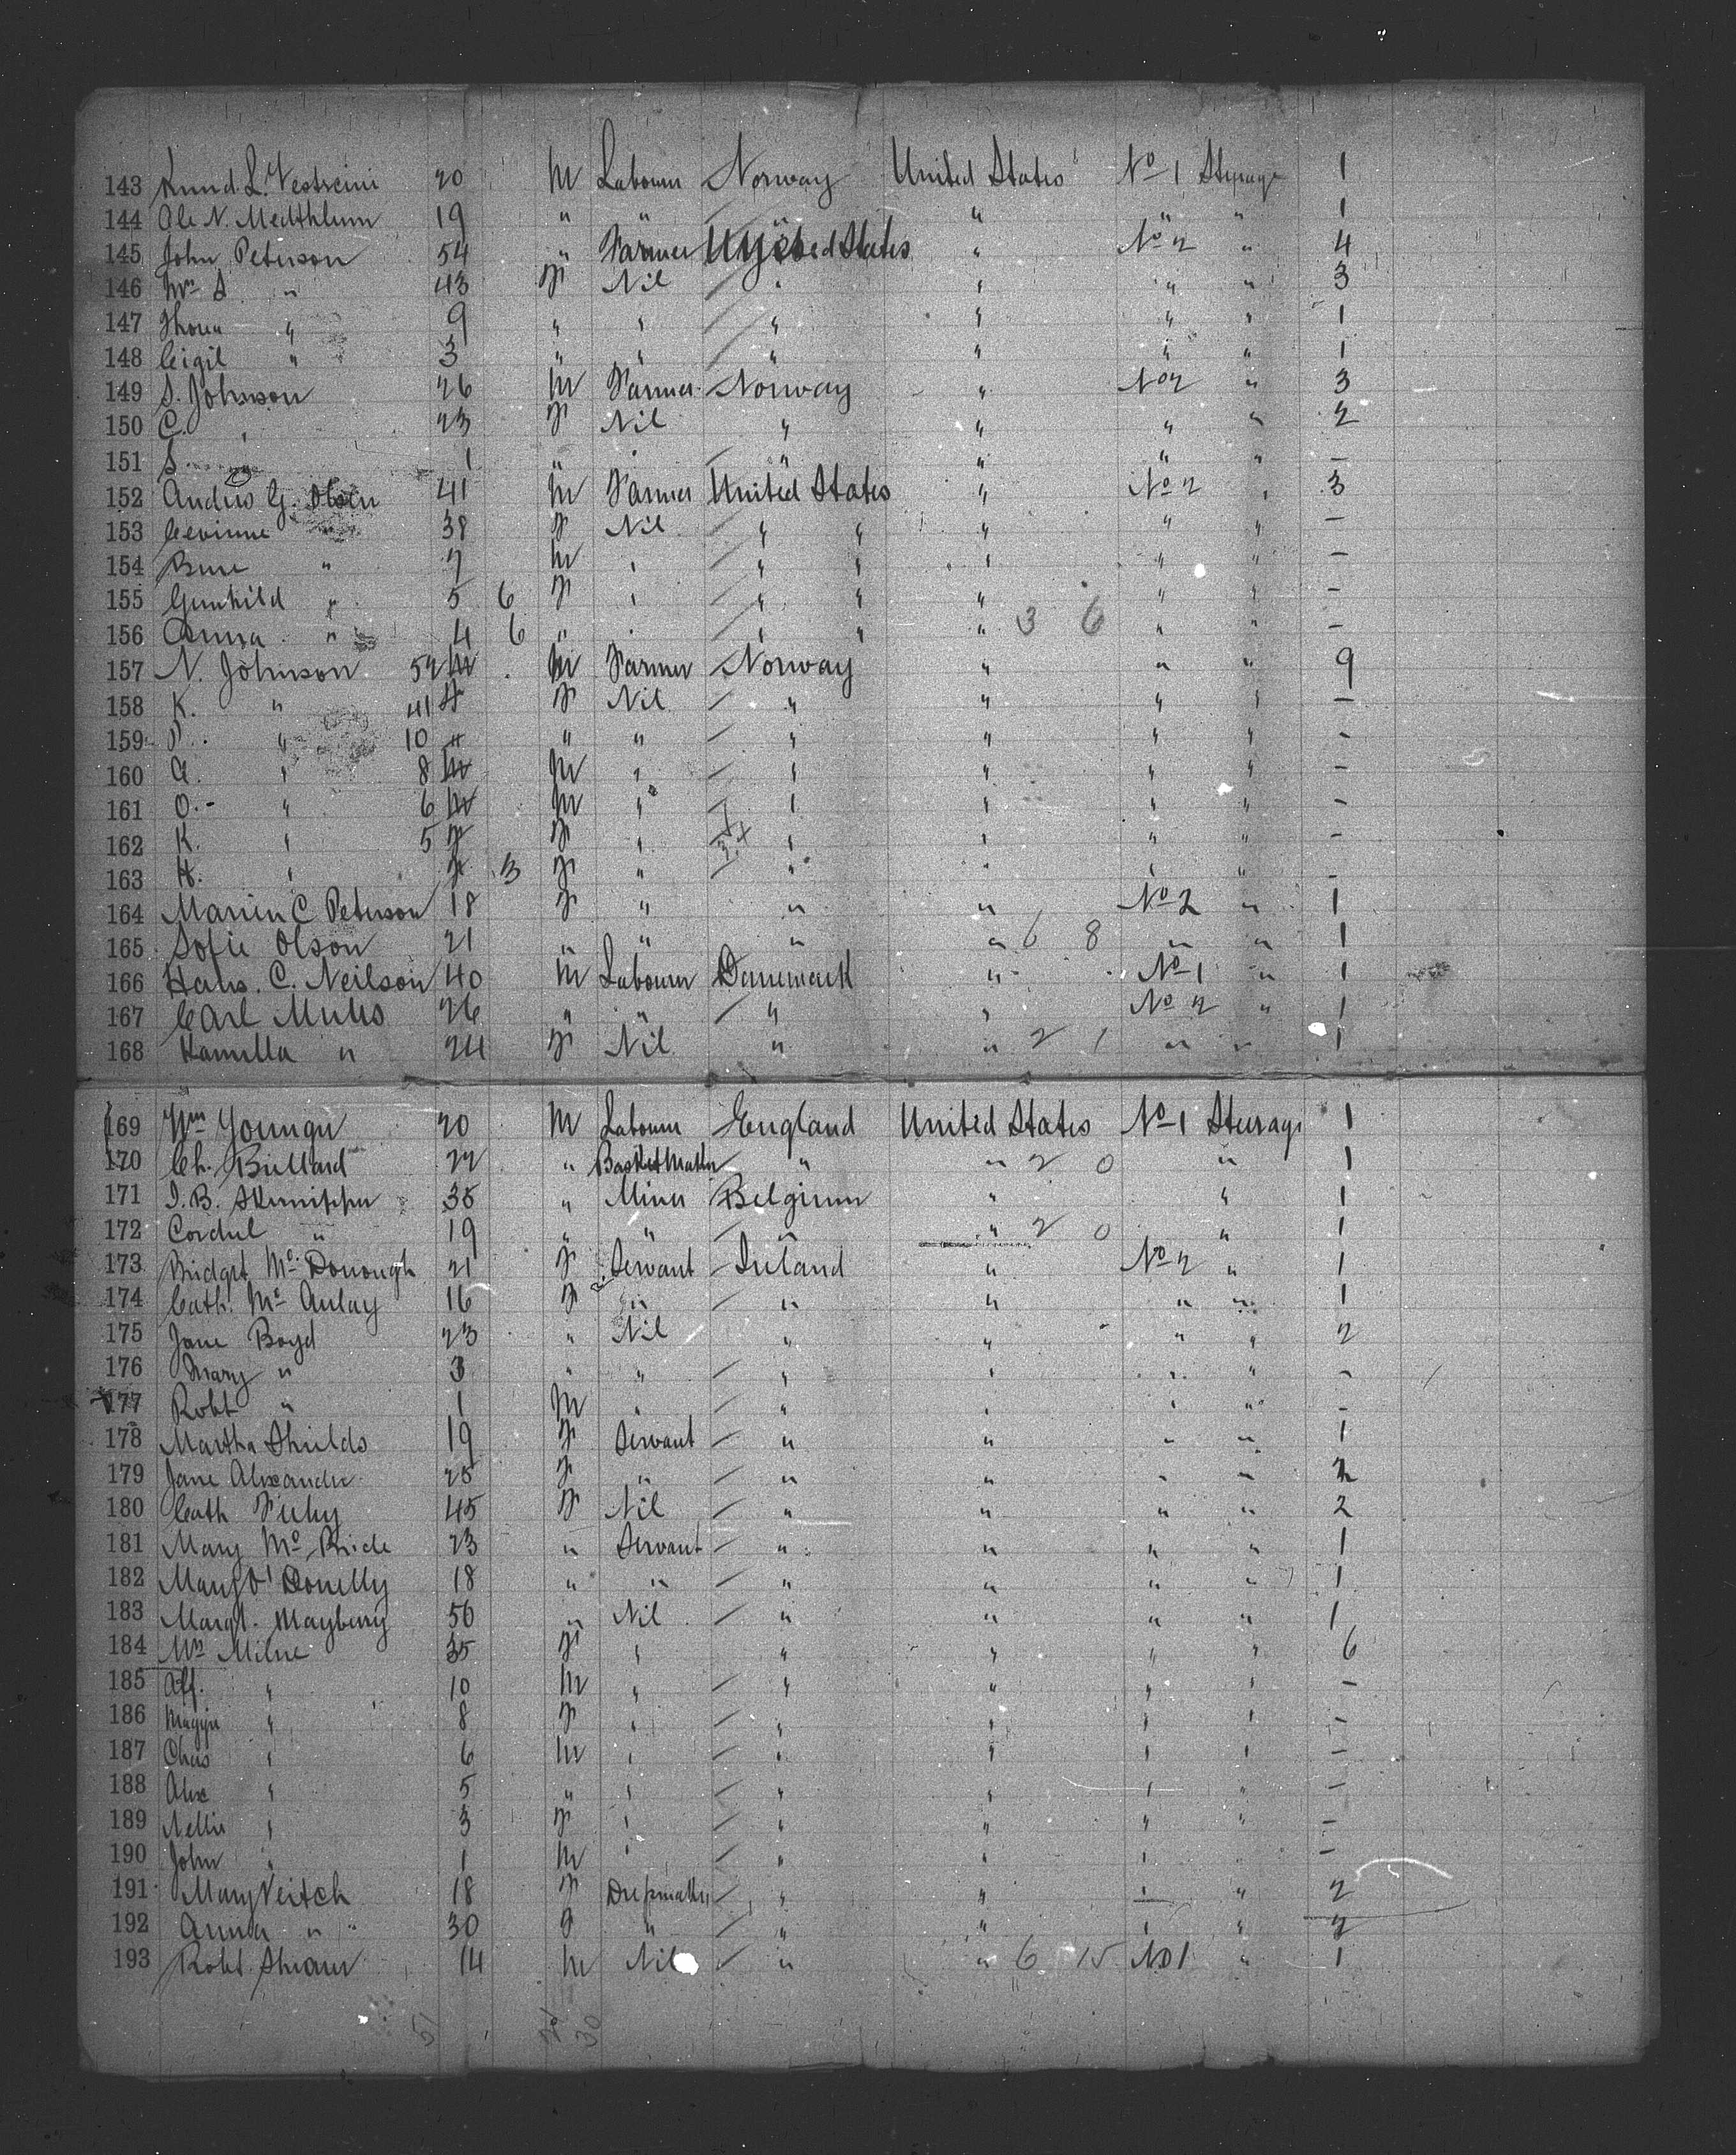 143 Knud. L. Vestreini 20 M Labourer Norway United States No 1 Steerage 1
144 Ole N. Medthlum 19 " " " " " " 1
145 John Peterson 54 " Farmer United States " No 2 " 4
146 Mrs S. " 43 F Nil " " " " 3
147 Thora " 9 " " " " " " 1
148 " 3 " " " " " " 1
149 S. Johnson 26 M Farmer Norway " No 2 " 3
150 C. " 23 F Nil " " " " 2
151 S. " 1 " " " " " " –
152 Andrew G. Olsen 41 M Farmer United States " No 2 " 3
153 38 F Nil " " " " " –
154 " 7 M " " " " " " –
155 Gunhild " 5 6 F " " " " " " –
156 Anna " 4 6 " " " " " 3 6 " " –
157 N. Johnson 52 M M Farmer Norway " " " 9
158 K. " 41 F F Nil " " " " –
159 P. " 10 " " " " " " " –
160 A. " 8 M M " " " " " –
161 O. " 6 M M " " " " " –
162 K. " 5 F F " " " " " –
163 H. " F 3 F " " " " " –
164 C Peterson 18 F " " " No 2 " 1
165 Sofie Olson 21 " " " " 6 8 " " 1
166 Hans. C. Neilson 40 M Labourer Denmark " No 1 " 1
167 Carl 26 " " " " No 2 " 1
168 Kamilla " 24 F Nil " " 2 1 " " 1
169 Wm Younger 20 M Labourer England United States No 1 Steerage 1
170 Ch. Bullard 22 " Basket Maker " " 2 0 " 1
171 J. B. 35 " Miner Belgium " " 1
172 " 19 " " " " 2 0 " 1
173 Bridget Mc Donough 21 F Servant Ireland " No 2 " 1
174 Cath. Mc Aulay 16 F " " " " " 1
175 Jane Boyd 23 " Nil " " " " 2
176 Mary " 3 " " " " " " –
177 Robt " 1 M " " " " " –
178 Martha Shields 19 F Servant " " " " 1
179 Jane Alexander 25 F " " " " " 2
180 Cath 45 F Nil " " " " 2
181 Mary Mc Bride 23 " Servant " " " " 1
182 Mary O'Donelly 18 " " " " " " 1
183 Margt. Mayberry 50 " Nil " " " " 1
184 Mrs Milne 35 F " " " " " 6
185 Alf. " 10 M " " " " " –
186 Maggie " 8 F " " " " " –
187 Chas " 6 M " " " " " –
188 Alex " 5 " " " " " " –
189 Nellie " 3 F " " " " " –
190 John " 1 M " " " " " –
191 Mary Veitch 18 F Dressmaker " " " " 2
192 Anna " 30 F " " " " " 2
193 Robt. Shearer 14 M Nil " " 6 15 No 1 " 1
51 21 30